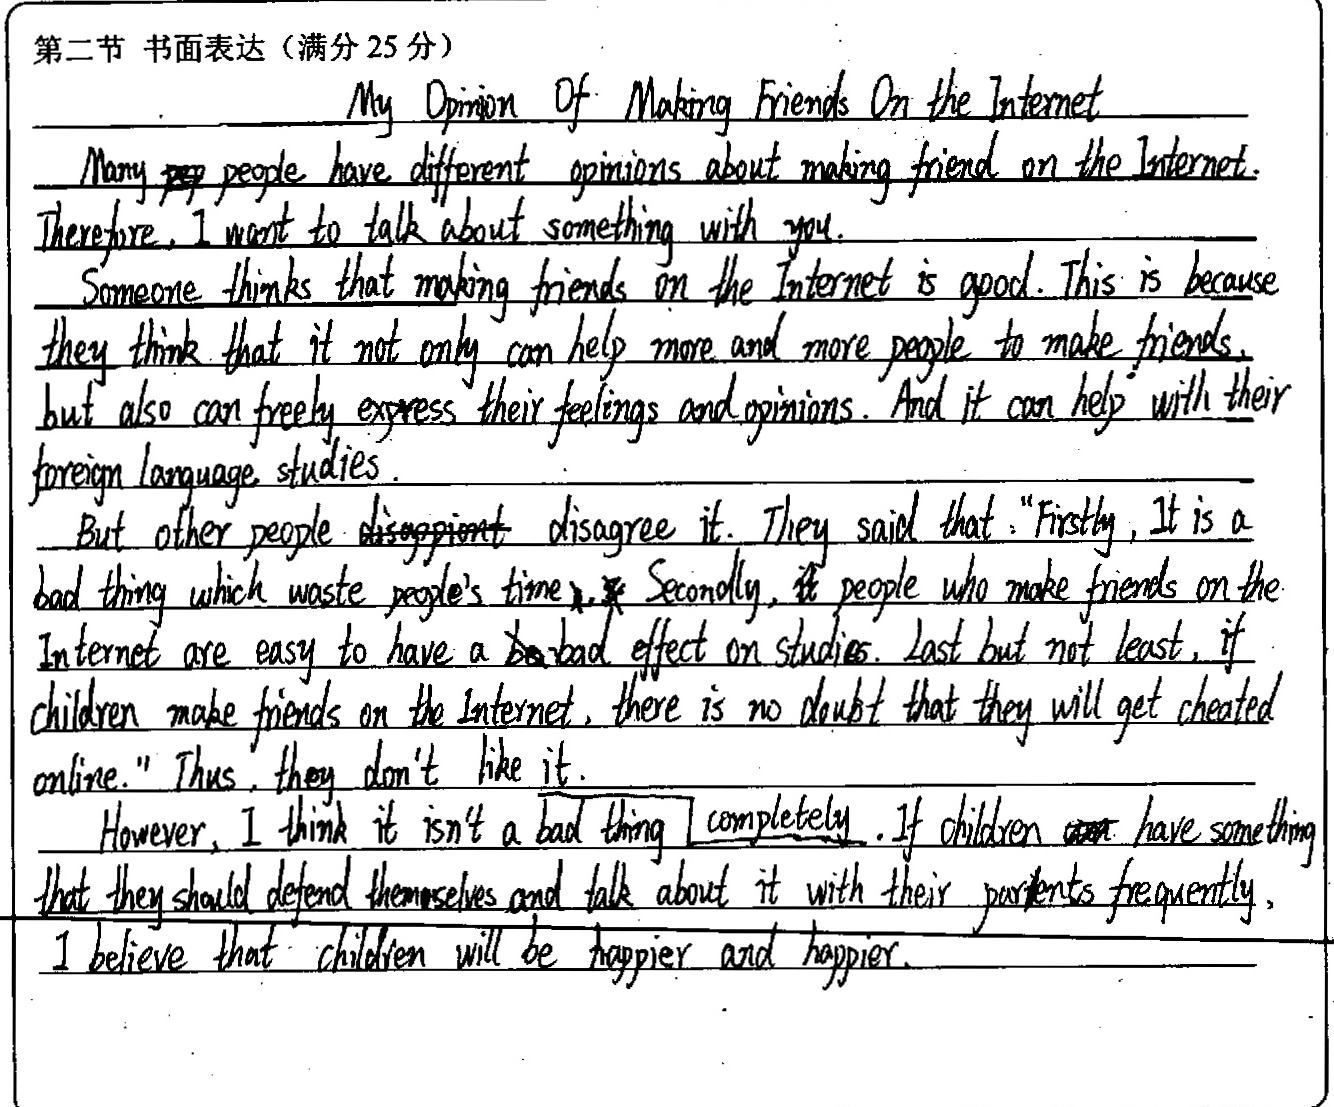 第二节 书面表达（满分 25 分）
My Opinion Of Making Friends On the Internet
Many people have different opinions about making friend on the Internet.
Therefore, I want to talk about something with you.
Someone thinks that making friends on the Internet is good. This is because
they think that it not only can help more and more people to make friends,
but also can freely express their feelings and opinions. And it can help with their
foreign language studies.
But other people disagree it. They said that :"Firstly, It is a
bad thing which waste people's time. Secondly, people who make friends on the
Internet are easy to have a bad effect on studies. Last but not least, if
children make friends on the Internet, there is no doubt that they will get cheated
online." Thus, they don't like it.
However, I think it isn't a bad thing completely. If children have something
that they should defend themselves and talk about it with their parents frequently,
I believe that children will be happier and happier.